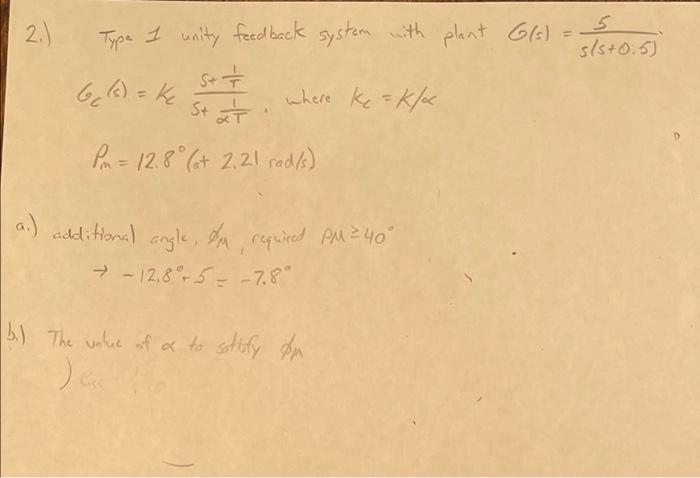 2.) Type 1 unity feedback system with plant G(s) = 5 / s(s+0.5).
Gc(s) = Kc (s + 1/T) / (s + 1/αT), where Kc = K/α
Pm = 12.8° (at 2.21 rad/s)
a.) additional angle, ϕM, required PM ≥ 40°
→ -12.8° + 5 = -7.8°
b.) The value of α to satisfy ϕM